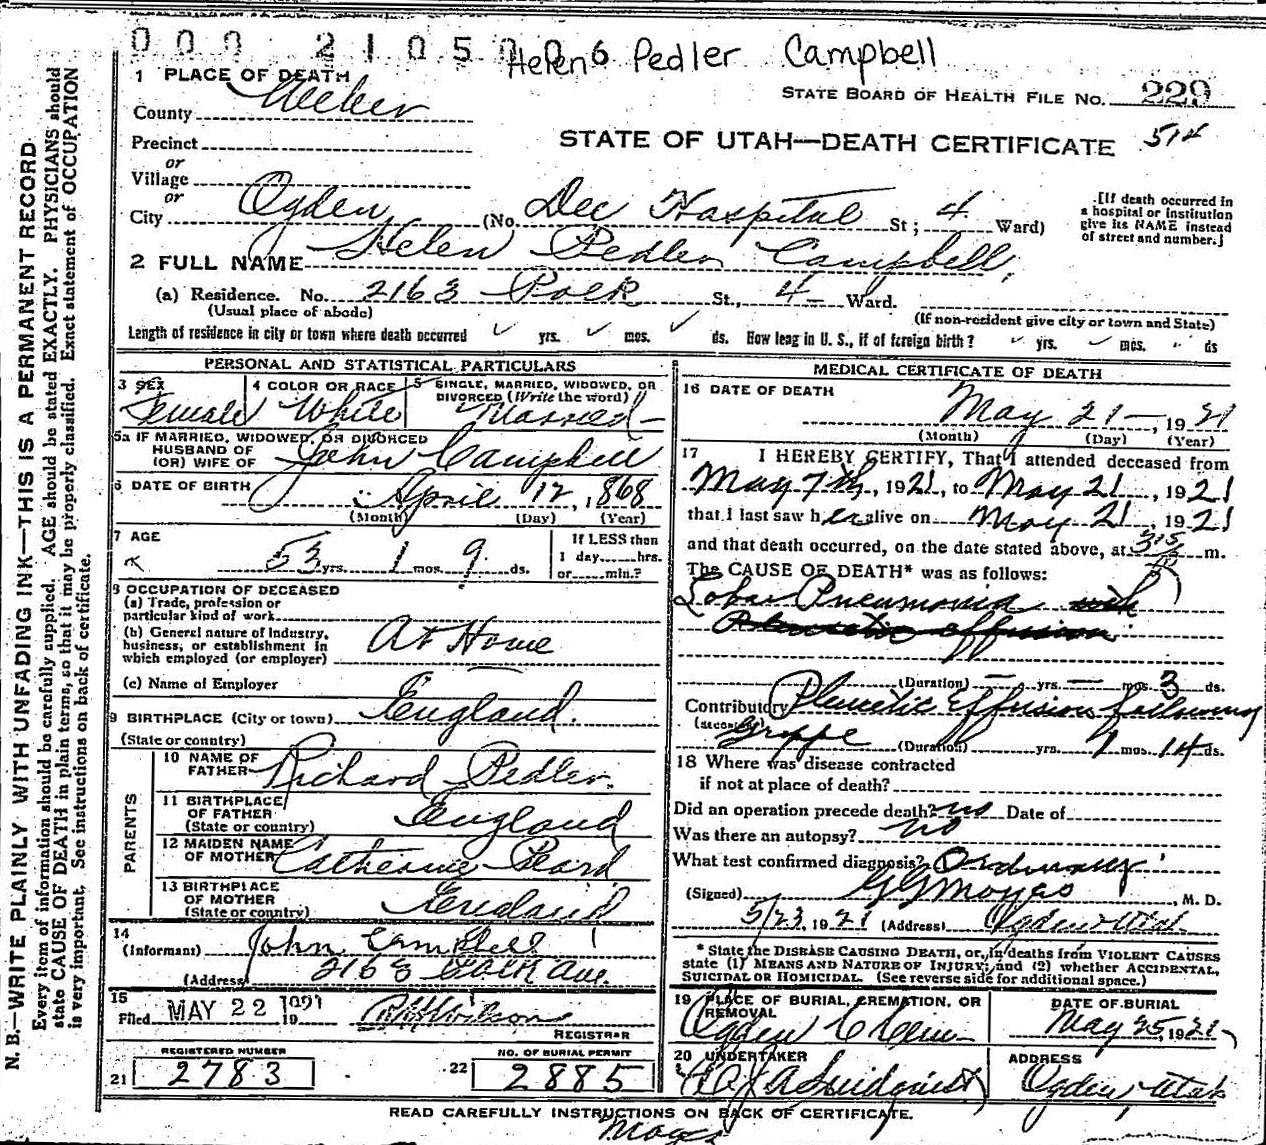 000 2105 6 Helen Pedler Campbell
1 PLACE OF DEATH
County Weber
STATE BOARD OF HEALTH FILE No. 229
Precinct
STATE OF UTAH—DEATH CERTIFICATE 514
or
Village
or
City Ogden (No. Dee Hospital St; 4 Ward) [If death occurred in a hospital or institution give its NAME instead of street and number.]
2 FULL NAME Helen Pedler Campbell,
(a) Residence. No. 2163 Polk St., 4 Ward.
(Usual place of abode) (If non-resident give city or town and State)
Length of residence in city or town where death occurred yrs. mos. ds. How long in U. S., if of foreign birth? yrs. mos. ds
PERSONAL AND STATISTICAL PARTICULARS
3 SEX 4 COLOR OR RACE 5 SINGLE, MARRIED, WIDOWED, OR DIVORCED (Write the word)
Female White Married
5a IF MARRIED, WIDOWED, OR DIVORCED
HUSBAND OF
(OR) WIFE OF John Campbell
6 DATE OF BIRTH April 12, 1868
(Month) (Day) (Year)
7 AGE 53 yrs. 1 mos. 9 ds. If LESS than 1 day hrs. or min.?
8 OCCUPATION OF DECEASED
(a) Trade, profession or
particular kind of work
(b) General nature of Industry,
business, or establishment in
which employed (or employer) At Home
(c) Name of Employer
9 BIRTHPLACE (City or town) England.
(State or country)
PARENTS
10 NAME OF FATHER Richard Pedler.
11 BIRTHPLACE OF FATHER (State or country) England
12 MAIDEN NAME OF MOTHER Catherine
13 BIRTHPLACE OF MOTHER (State or country) England
14
(Informant) John Campbell
(Address) 2163 Polk Ave.
15
Filed MAY 22 1921 19 Wilson
REGISTRAR
REGISTERED NUMBER NO. OF BURIAL PERMIT
21 2783 22 2885
MEDICAL CERTIFICATE OF DEATH
16 DATE OF DEATH
May 21—, 1921
(Month) (Day) (Year)
17 I HEREBY CERTIFY, That I attended deceased from
May 7th, 1921, to May 21, 1921
that I last saw her alive on May 21, 1921
and that death occurred, on the date stated above, at m.
The CAUSE OF DEATH* was as follows:
Lobar Pneumonia with
Pleuretic effusion
(Duration) — yrs. — mos. 3 ds.
Contributory Pleuretic Effusion following
(secondary) Grippe (Duration) yrs. 1 mos. 14 ds.
18 Where was disease contracted
if not at place of death?
Did an operation precede death? no Date of
Was there an autopsy? No
What test confirmed diagnosis? Ordinary
(Signed) M. D.
5/23, 1921 (Address) Ogden Utah
* State the DISEASE CAUSING DEATH, or, in deaths from VIOLENT CAUSES
state (1) MEANS AND NATURE OF INJURY; and (2) whether ACCIDENTAL,
SUICIDAL OR HOMICIDAL. (See reverse side for additional space.)
19 PLACE OF BURIAL, CREMATION, OR REMOVAL DATE OF BURIAL
Ogden May 25, 1921
20 UNDERTAKER ADDRESS
Ogden, Utah
READ CAREFULLY INSTRUCTIONS ON BACK OF CERTIFICATE.
N. B.—WRITE PLAINLY WITH UNFADING INK—THIS IS A PERMANENT RECORD
Every item of information should be carefully supplied. AGE should be stated EXACTLY. PHYSICIANS should
state CAUSE OF DEATH in plain terms, so that it may be properly classified. Exact statement of OCCUPATION
is very important. See instructions on back of certificate.